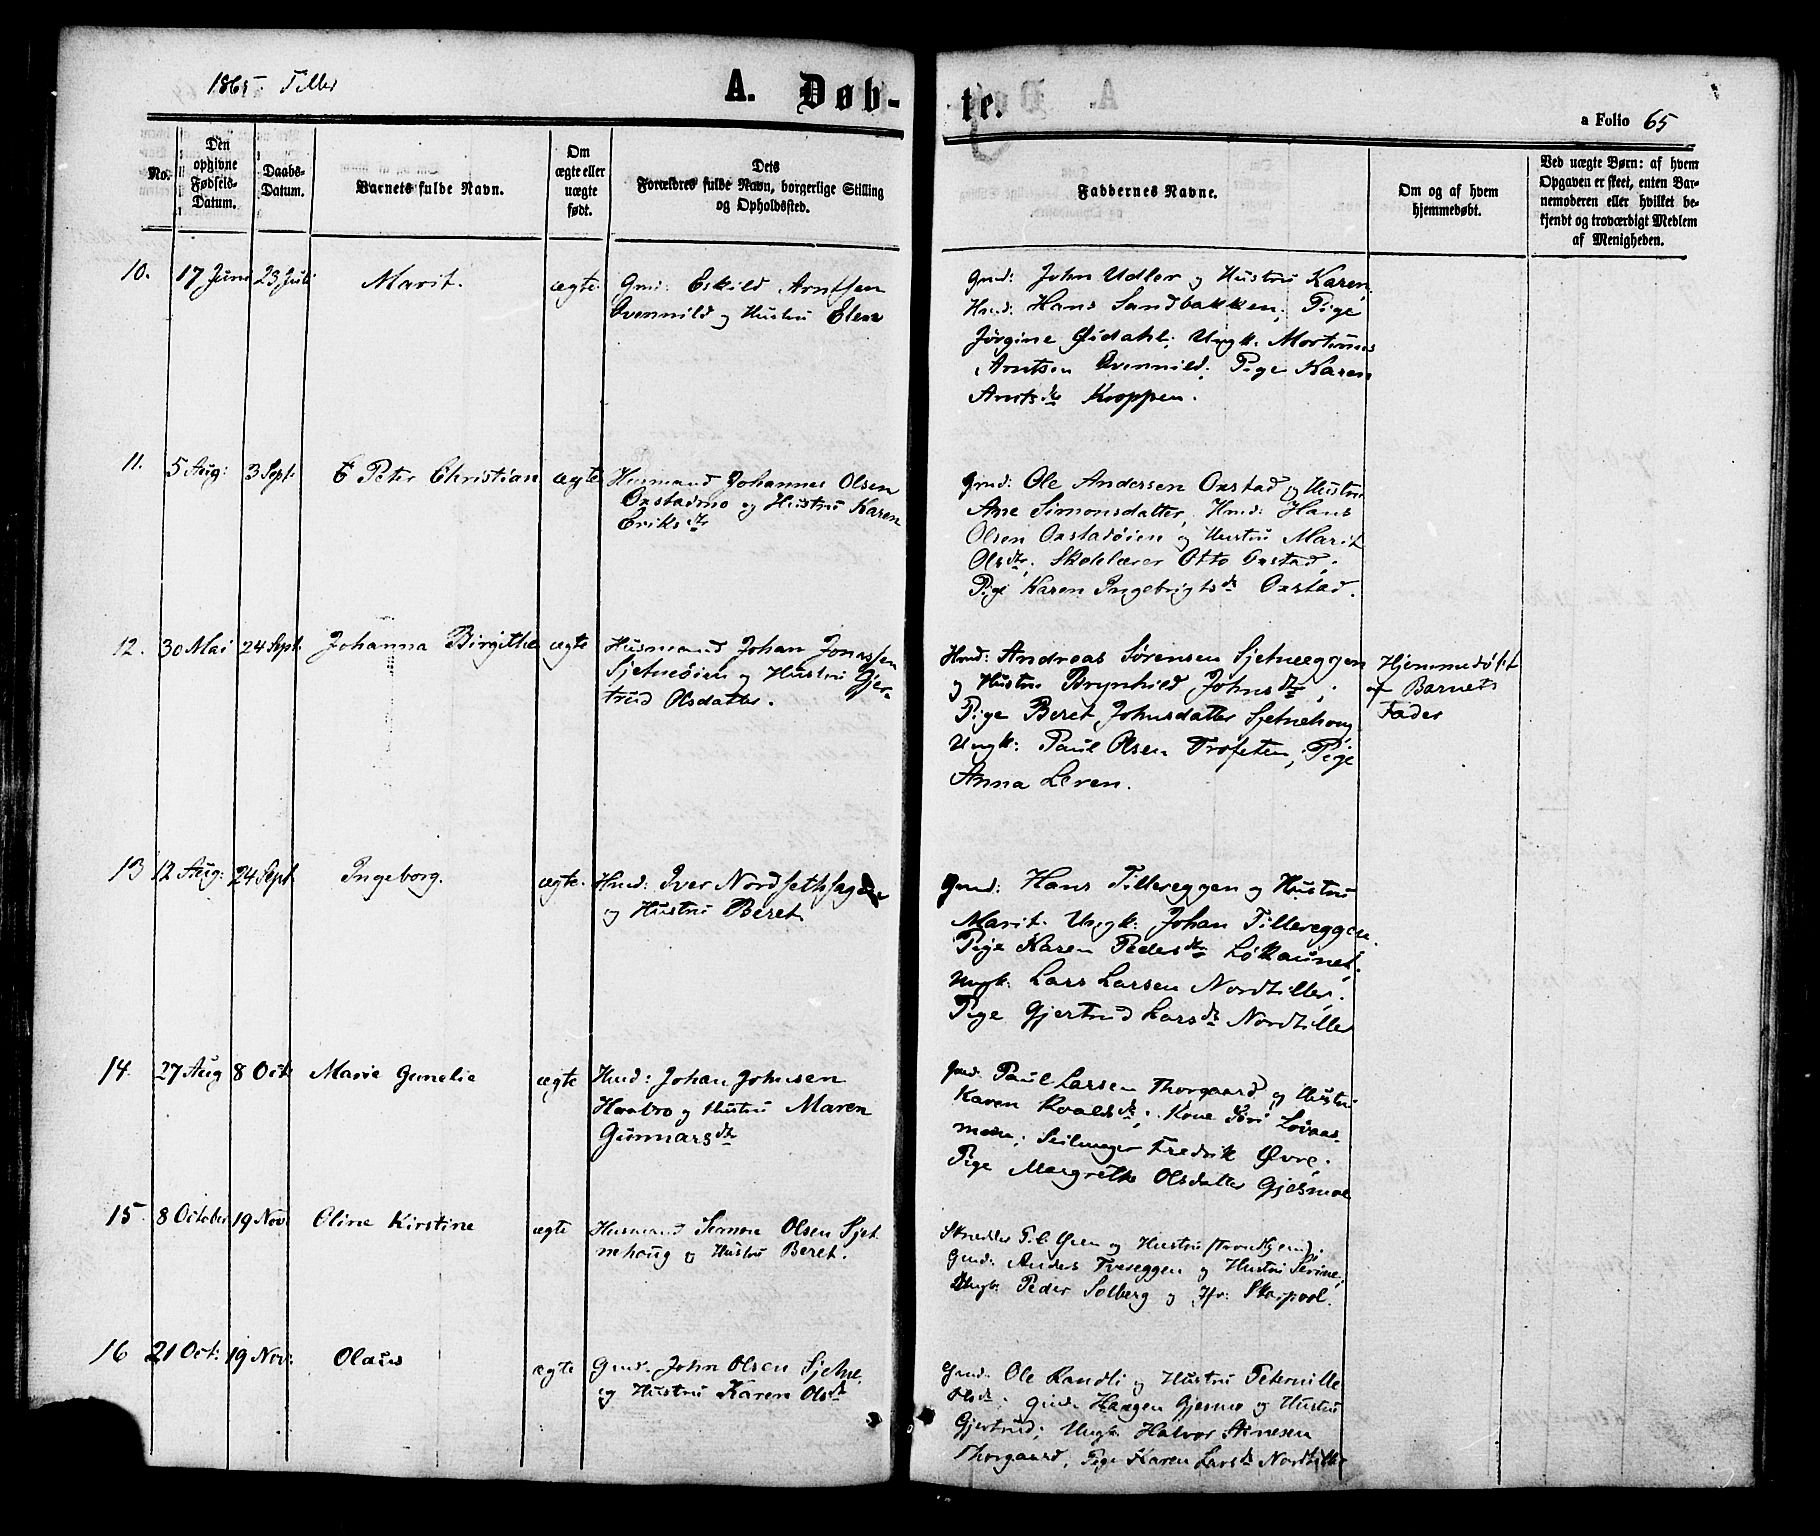 1865. Tiller
A. Døb-
te.
a Folio 65
No.
Den opgivne Fødsels-Datum.
Daabs-Datum.
Barnets fulde Navn.
Om ægte eller uægte født.
Dets
Forældres fulde Navn, borgerlige Stilling
og Opholdssted.
Faddernes Navne.
Om og af hvem
hjemmedøbt.
Ved uægte Børn: af hvem
Opgaven er skeet, enten Bar-
nemoderen eller hvilket be-
kjendt og troværdigt Medlem
af Menigheden.
10. 17 Juni 23 Juli Marit. ægte
Gmd: Eskild Arntsen
Kvennild og Hustru Elen
Gmd: John Udler og Hustru Karen,
Hmd: Hans Sandbakken; Pige
Jørgine Øidahl; Ungk.
Arntsen Kvennild; Pige Karen
Arntsdtr Kroppen.
11. 5 Aug: 3 Sept. Peter Christian ægte
Husmand Johannes Olsen
Oxstadmo og Hustru Karen
Eriksdtr
Gmd: Ole Andersen Oxstad og Hustru
Ane Simonsdatter, Hmd: Hans
Olsen Oxstadøien og Hustru Marit
Olsdtr; Skolelærer Otto Oxstad;
Pige Karen Ingebrigtsdr Oxstad.
12. 30 Mai 24 Sept. Johanna Birgitha ægte
Husmand Johan Jonassen
Sjetneøien og Hustru Gjer-
trud Olsdatter.
Hmd: Andreas Sørensen Sjetneeggen
og Hustru Brynhild Johnsdtr;
Pige Beret Johnsdatter Sjetnehoug,
Ungk: Paul Olsen Trofeten; Pige
Anna Leren.
Hjemmedøbt
af Barnets
Fader
13 12 Aug: 24 Sept Ingeborg. ægte.
Hmd: Iver Nordsethsagen
og Hustru Beret
Gmd: Hans Tillereggen og Hustru
Marit. Ungk: Johan Tillereggen.
Pige Karen Pedersdtr Løkaunet;
Ungk: Lars Larsen Nordtiller;
Pige Gjertrud Larsdr Nordtiller
14. 27 Aug 8 Oct Marie Gunelie ægte
Hmd: Johan Johnsen
og Hustru Maren
Gunnarsdtr
Gmd: Paul Larsen Thorgaard og Hustru
Karen Roaldsdr; Kone Siri Løvaas-
moen; Seilmager Fredrik Øvre;
Pige Margrethe Olsdatter Gjesmoe
15. 8 October 19 Nov: Oline Kirstine ægte
Husmand Simon Olsen Sjet
nehoug og Hustru Beret.
Skrædder og Hustru (Trondhjem);
Gmd: Anders Tvereggen og Hustru Serine;
Ungk: Peder Solberg og Jfr: Skarpvol.
16 21 Oct: 19 Nov: Olaus ægte
Gmd. John Olsen Sjetne,
og Hustru Karen Olsdr
Gmd: Ole Randli og Hustru Peternille
Olsdr; Gmd: Haagen Gjesmo og Hustru
Gjertrud; Ungk: Halvor Stinesen
Thorgaard, Pige Karen Larsdr Nordtiller